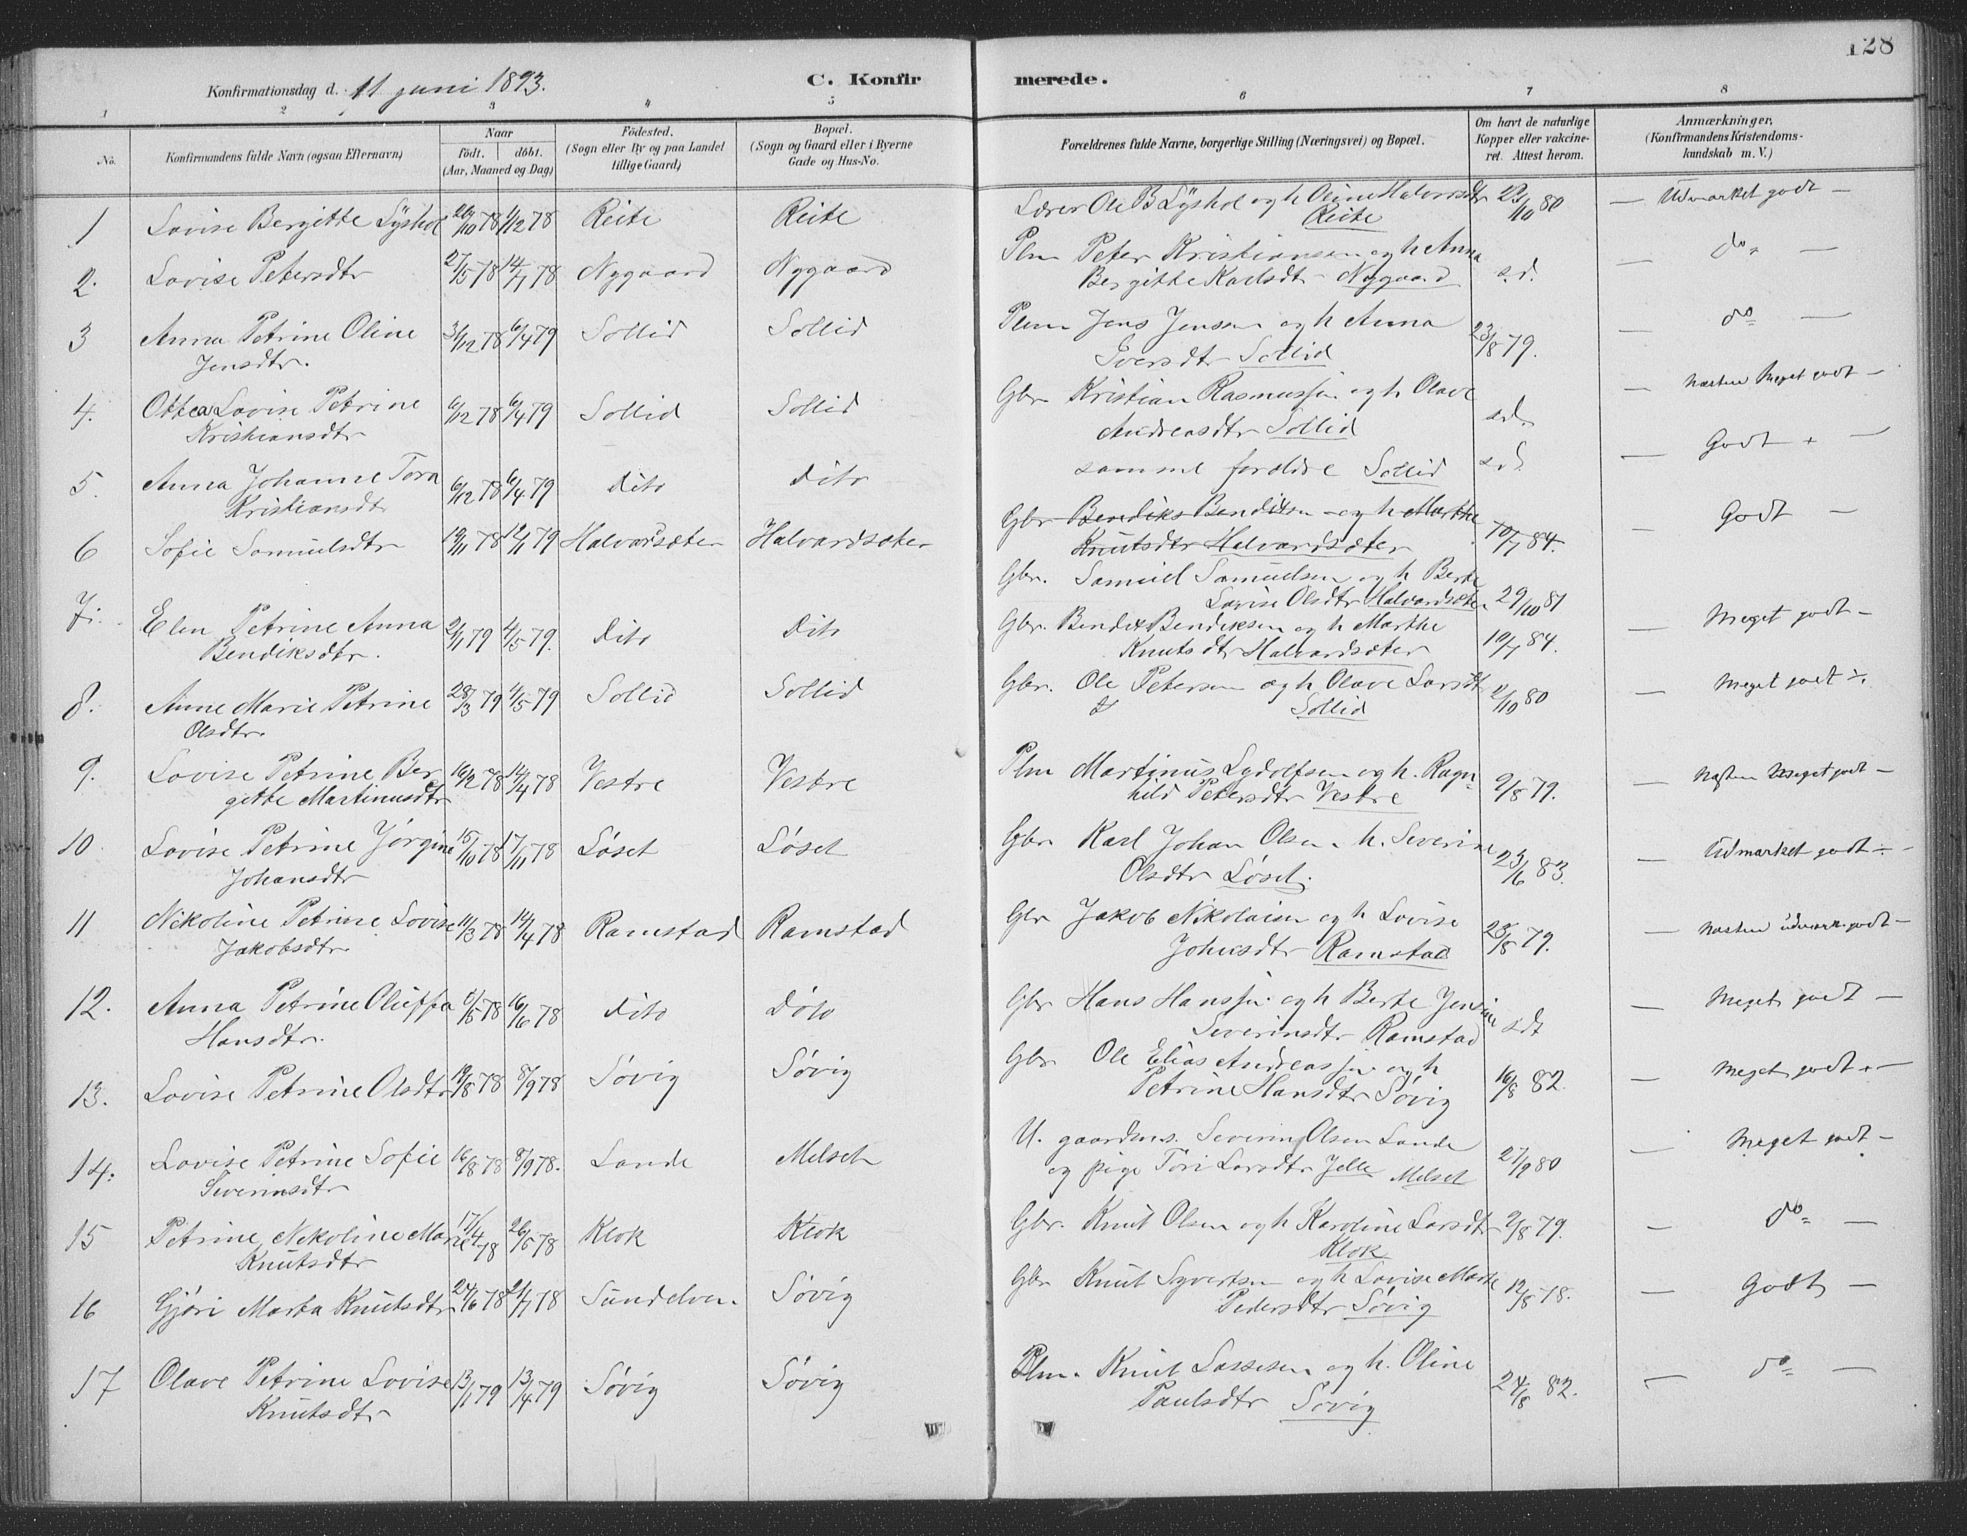 128
Konfirmationsdag d. 11 juni 1893.
C. Konfirmerede.
1 2 3 4 5 6 7 8
No.
Konfirmandens fulde Navn (ogsaa Efternavn)
Naar
født. døbt.
(Aar, Maaned og Dag)
Födested.
(Sogn eller By og paa Landet
tillige Gaard)
Bopæl.
(Sogn og Gaard eller i Byerne
Gade og Hus-No.
Forældrenes fulde Navne, borgerlige Stilling (Næringsvei) og Bopæl.
Om havt de naturlige
Kopper eller vakcine-
ret. Attest herom.
Anmærkninger.
(Konfirmandens Kristendoms-
kundskab m. V.)
1 Lovise Bergitte Lyshol 26/10 78 1/12 78 Reite Reite Lærer Ole B Lyshol og h Oline Halvorsdtr 23/10 80 — Udmærket godt —
Reite
2. Lovise Petersdtr 27/5 78 14/7 78 Nygaard Nygaard Plm Peter Kristiansen og h Anna s.d. — do —
Bergitte Karlsdtr Nygaard
3 Anna Petrine Oline 31/12 78 6/4 79 Sollid Sollid Plm Jens Jensen og h Anna 23/8 79. — do —
Jensdtr. Iversdtr Sollid
4. Ottea Lovise Petrine 6/12 78 6/4 79 Sollid Sollid Gbr Kristian Rasmussen og h Olave s.d. — Næsten Meget godt —
Kristiansdtr Andreasdtr Sollid
5. Anna Johanne Tora 6/12 78 6/4 79 Dito Dito samme forældre Sollid s.d. — Godt + —
Kristiansdtr
6 Sofie Samuelsdtr 19/11 78 12/1 79 Halvardsæter Halvardsæter Gbr Bendiks Bendiksen og h Marthe 10/7 84. — Godt —
Knutsdtr Halvardsæter
Gbr. Samuel Samuelsen og h Berte
Lovise Olsdtr Halvardsæter 29/10 81
7. Elen Petrine Anna 2/1 79 4/5 79. Dito Dito Gbr. Bendix Bendiksen og h Marthe 10/7 84. — Meget godt —
Bendiksdtr. Knutsdtr Halvardsæter
8. Anne Marie Petrine 28/3 79 4/5 79 Sollid Sollid Gbr. Ole Petersen og h Olave Larsdtr 2/10 80 — Meget godt ÷.
Olsdtr. Sollid
9. Lovise Petrine Ber 16/2 78 14/4 78 Vestre Vestre Plm Martinus Lydolfsen og h. Ragn- 9/8 79. — Næsten Meget godt —
gitte Martinusdtr hild Petersdtr Vestre
10. Lovise Petrine Jørgine 15/10 78 17/11 78 Løset Løset Gbr Karl Johan Olsen h. Severine 23/6 83. — Udmærket godt ÷
Johansdtr Olsdtr Løset.
11 Nikoline Petrine Lovise 11/3 78 14/4 78 Ramstad Ramstad Gbr Jakob Nikolaisen og h Lovise 28/8 79. — Næsten udmærk. godt —
Jakobsdtr. Johnsdtr Ramstad
12. Anna Petrine Oluffa 11/5 78 16/6 78 Dito Dito Gbr Hans Hanssen og h Berte Jensine sdt — Meget godt —
Hansdtr. Severinsdtr Ramstad
13. Lovise Petrine Olsdtr 19/8 78 8/9 78 Søvig Søvig Gbr Ole Elias Andreassen og h 16/8 82. — Meget godt + —
Petrine Hansdtr Søvig
14. Lovise Petrine Sofie 16/8 78 8/9 78. Lande Melset U. gaardms. Severin Olsen Lande 27/9 80 — Meget godt —
Severinsdtr og pige Tøri Larsdtr Jelle Melset
15 Petrine Nikoline Marie 17/4 78 26/5 78 Klok Klok Gbr. Knut Olsen og h Karoline Larsdtr 9/8 79. — do —
Knutsdtr Klok
16 Gjøri Marta Knutsdtr 24/6 78 21/7 78 Sundelven. Søvig Gbr Knut Syvertsen og h Lovise Marte 12/8 78. — Godt —
Pedersdtr Søvig
17 Olave Petrine Lovise 13/1 79 13/4 79 Søvig Søvig Plm. Knut Lassesen og h. Oline 24/8 82. — do —
Knutsdtr Paulsdtr Søvig